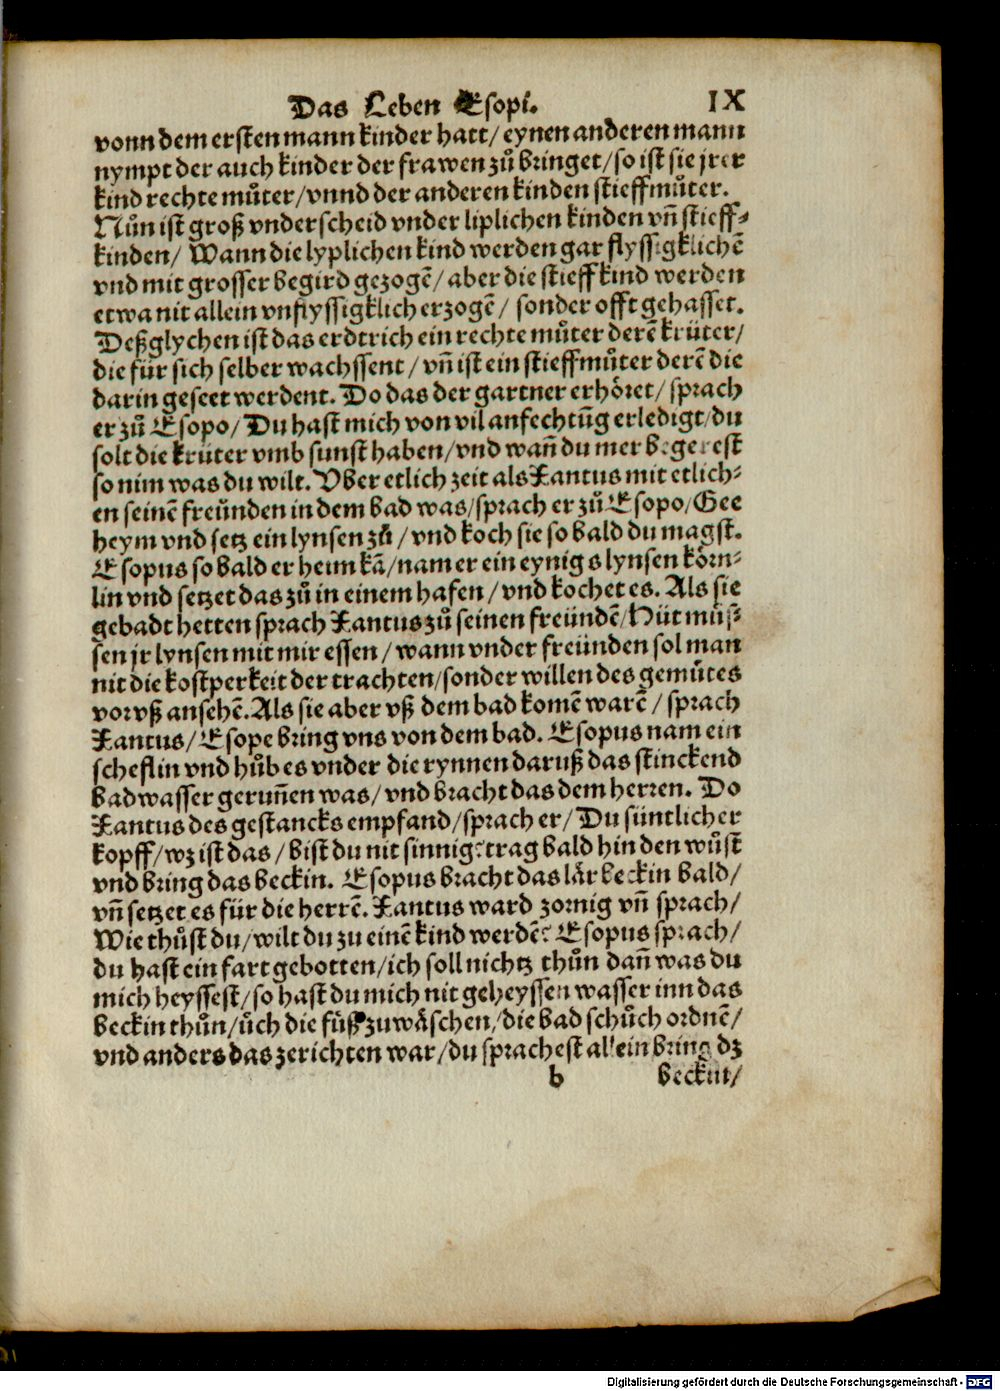 Das Leben Esopi. IX
vonn dem ersten mann kinder hatt/ eynen anderen mann
nympt der auch kinder der frawen zů bringet/ so ist sie jrer
kind rechte můter/ vnnd der anderen kinden stieffmůter.
Nůn ist groß vnderscheid vnder liplichen kinden vñ stieff-
kinden/ Wann die lyplichen kind werden gar flyssigklichē
vnd mit grosser begird gezogē/ aber die stieffkind werden
etwa nit allein vnflyssigklich erzogē/ sonder offt gehasset.
Deßglychen ist das erdtrich ein rechte můter derē krüter/
die für sich selber wachssent/ vñ ist ein stieffmůter derē die
darin geseet werdent. Do das der gartner erhöret/ sprach
er zů Esopo/ Du hast mich von vil anfechtūg erledigt/ du
solt die krüter vmb sunst haben/ vnd wañ du mer begerest
so nim was du wilt. Vber etlich zeit als Xantus mit etlich-
en seinē freünden in dem bad was/ sprach er zů Esopo/ Gee
heym vnd setz ein lynsen zů/ vnd koch sie so bald du magst.
Esopus so bald er heim kā/ nam er ein eynigs lynsen körn-
lin vnd setzet das zů in einem hafen/ vnd kochet es. Als sie
gebadt hetten sprach Xantus zů seinen freündē/ Hüt müs-
sen jr lynsen mit mir essen/ wann vnder freünden sol man
nit die kostperkeit der trachten/ sonder willen des gemůtes
vorvß ansehē. Als sie aber vß dem bad komē warē/ sprach
Xantus/ Esope bring vns von dem bad. Esopus nam ein
scheflin vnd hůb es vnder die rynnen daruß das stinckend
badwasser geruñen was/ vnd bracht das dem herren. Do
Xantus des gestancks empfand/ sprach er/ Du süntlicher
kopff/ wz ist das/ bist du nit sinnig? trag bald hin den wůst
vnd bring das beckin. Esopus bracht das lär beckin bald/
vñ setzet es für die herrē. Xantus ward zornig vñ sprach/
Wie thůst du/ wilt du zu einē kind werdē? Esopus sprach/
du hast ein fart gebotten/ ich soll nichtz thůn dañ was du
mich heyssest/ so hast du mich nit geheyssen wasser inn das
beckin thůn/ üch die füß zuwäschen/ die bad schůch ordnē/
vnd anders das zerichten war/ du sprachest allein bring dz
b beckin/
Digitalisierung gefördert durch die Deutsche Forschungsgemeinschaft - DFG